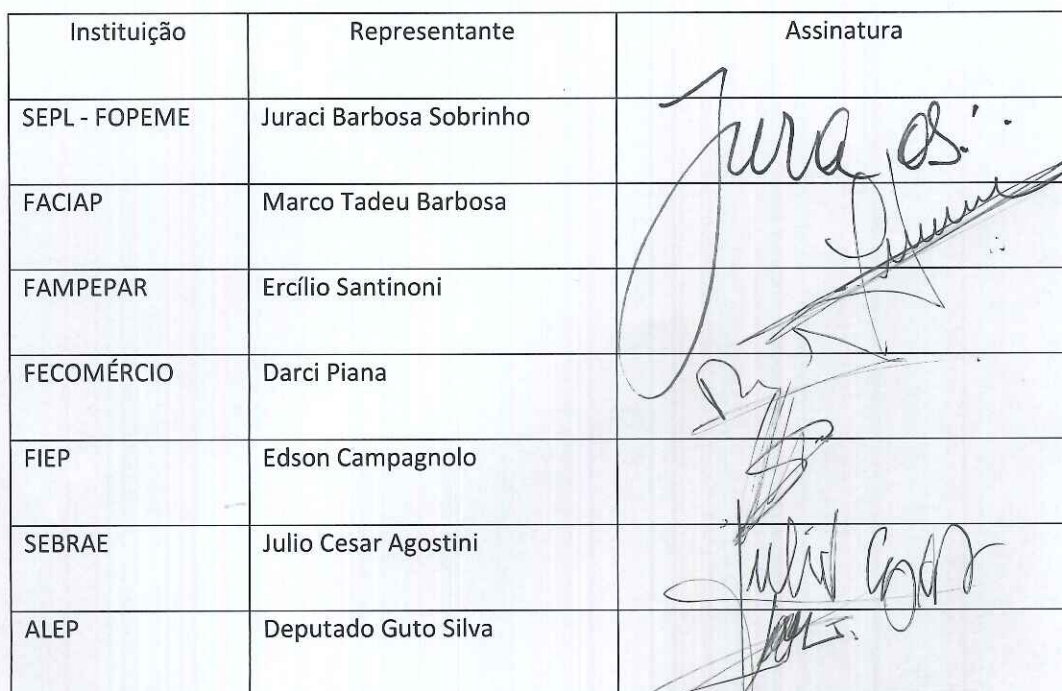 Instituição Representante Assinatura
SEPL - FOPEME Juraci Barbosa Sobrinho
FACIAP Marco Tadeu Barbosa
FAMPEPAR Ercílio Santinoni
FECOMÉRCIO Darci Piana
FIEP Edson Campagnolo
SEBRAE Julio Cesar Agostini
ALEP Deputado Guto Silva